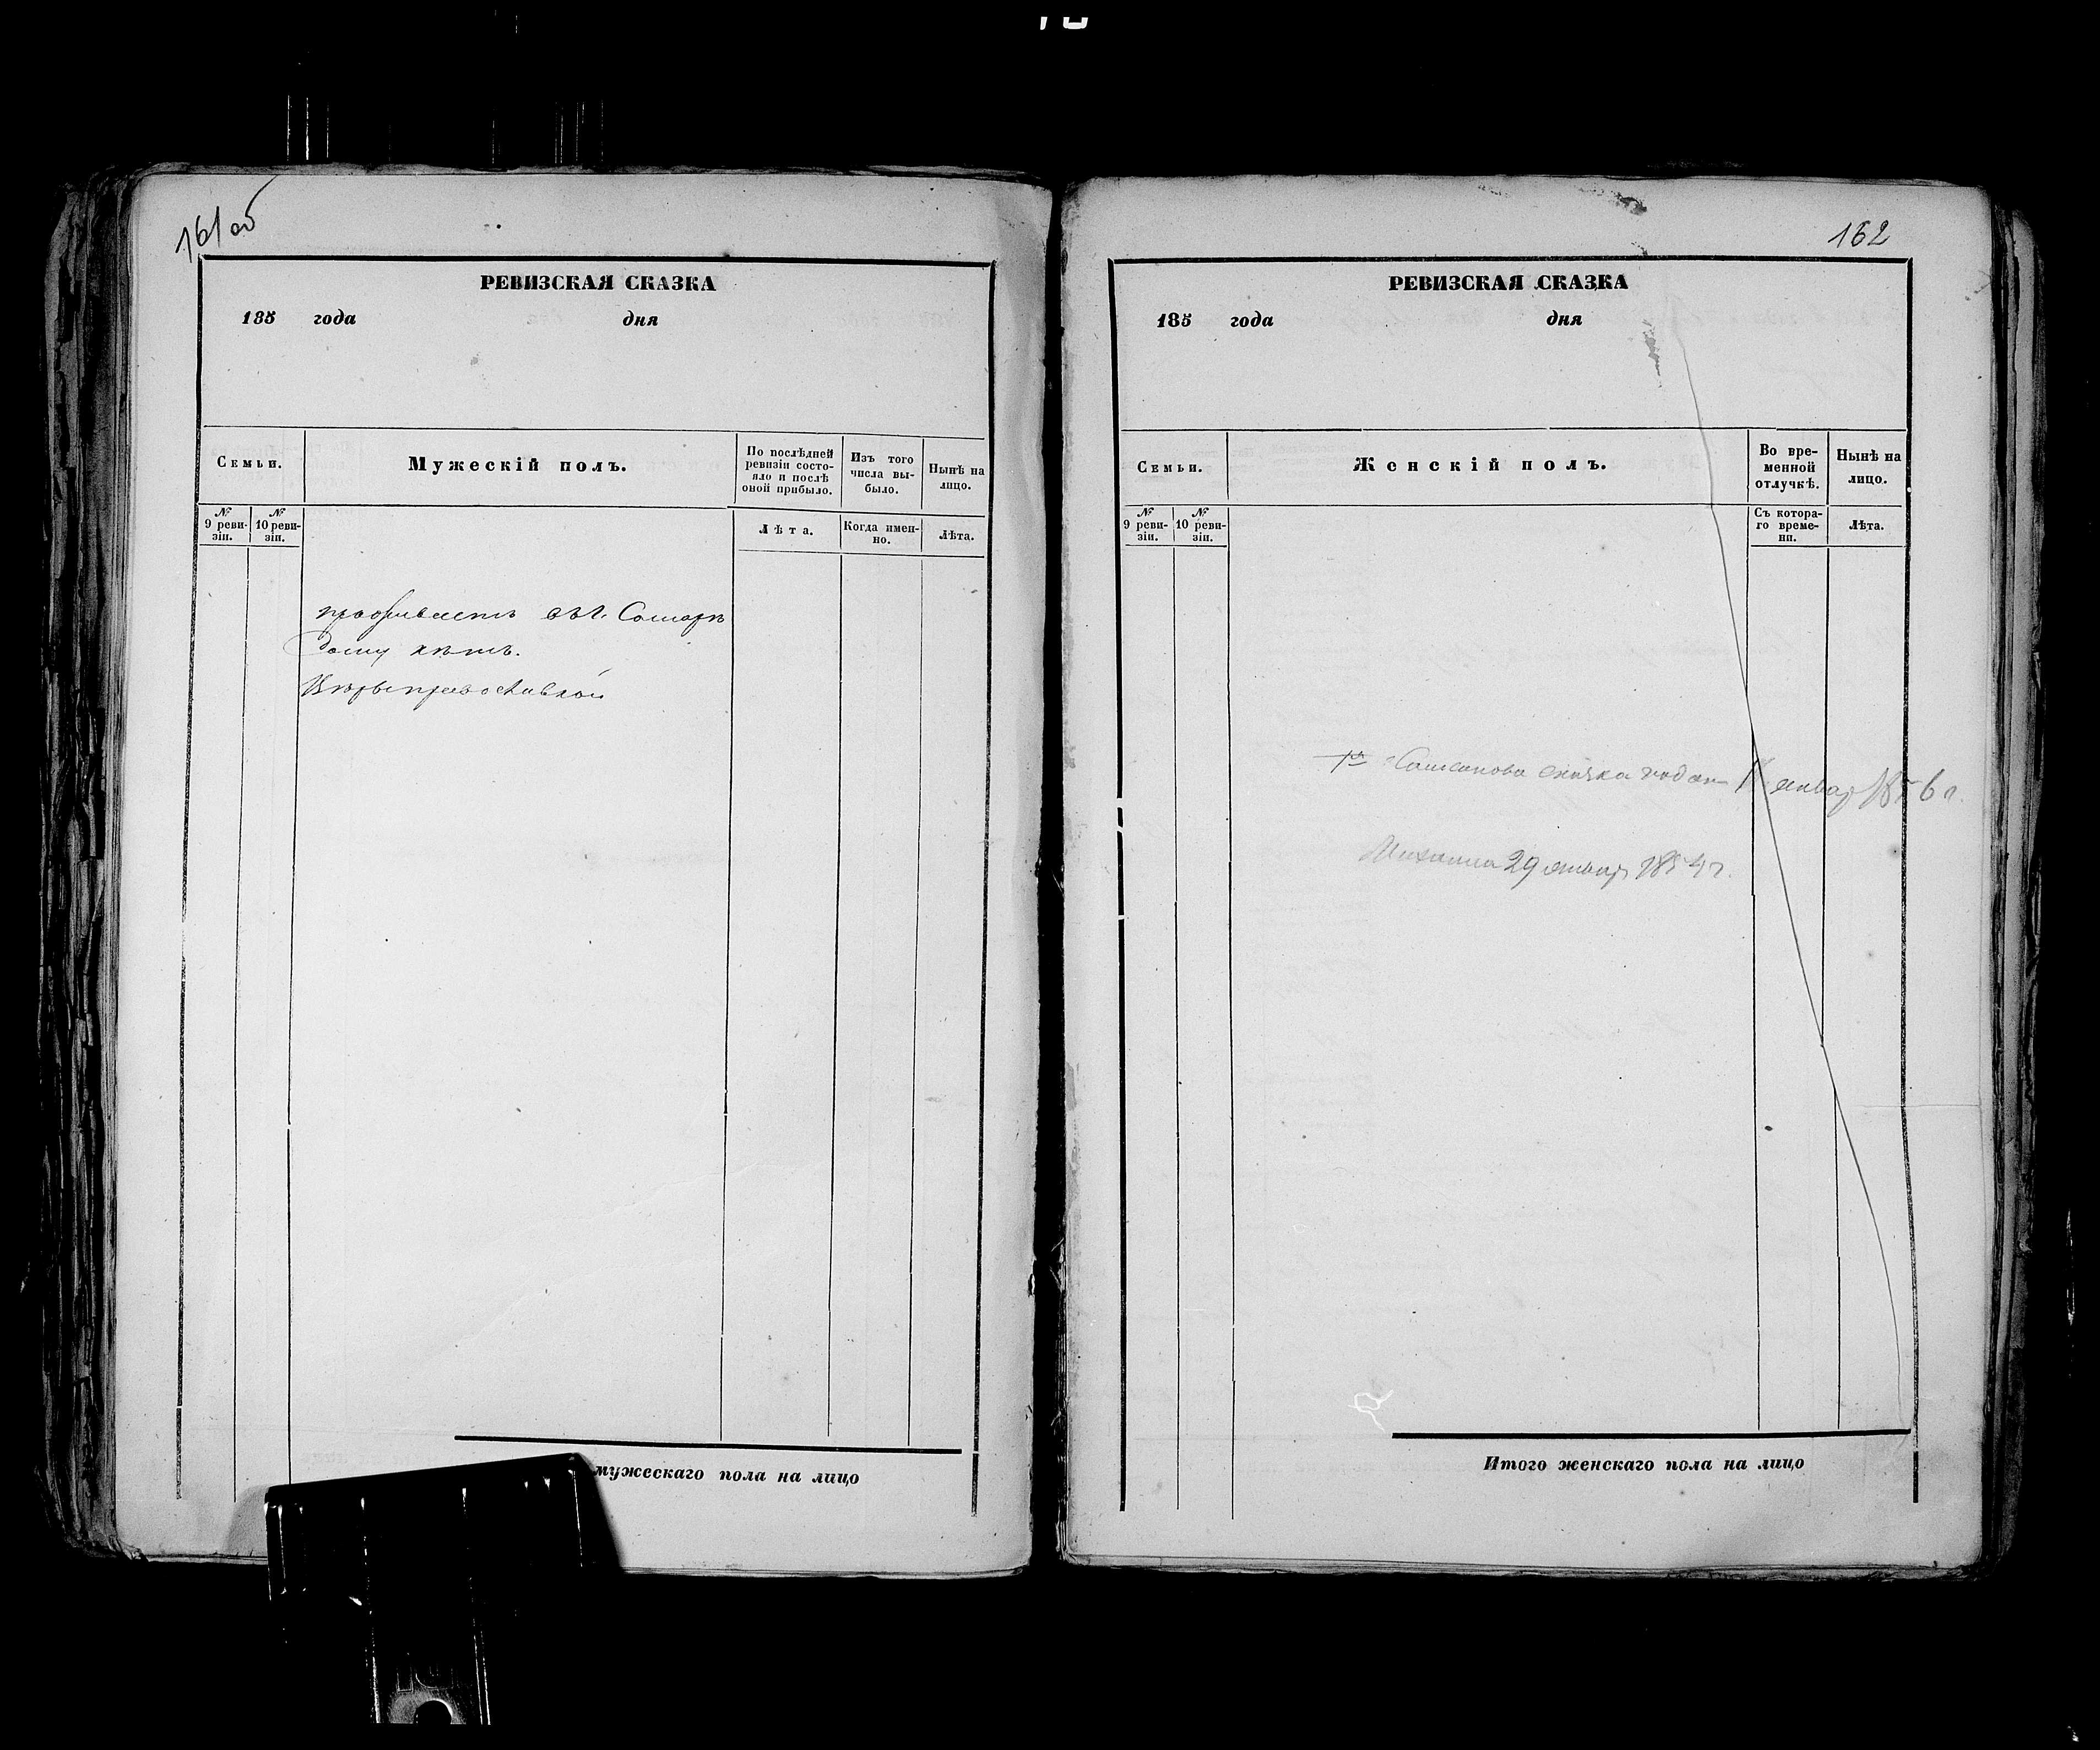 161об
РЕВИЗСКАЯ СКАЗКА
185 года дня
Семьи.
Мужескій полъ.
По послѣдней ревизіи состояло и послѣ оной прибыло.
Изъ того числа выбыло.
Нынѣ на лицо.
№ 9 ревизіи.
№ 10 ревизіи.
Лѣта.
Когда именно.
Лѣта.
проживаетъ въ г. Самарѣ
дому нѣтъ.
Вѣры православной
мужескаго пола на лицо
162
РЕВИЗСКАЯ СКАЗКА
185 года дня
Семьи.
Женскій полъ.
Во временной отлучкѣ.
Нынѣ на лицо.
№ 9 ревизіи.
№ 10 ревизіи.
Съ котораго времени.
Лѣта.
сказка январ 1856 г.
29 январ 185 г.
Итого женскаго пола на лицо